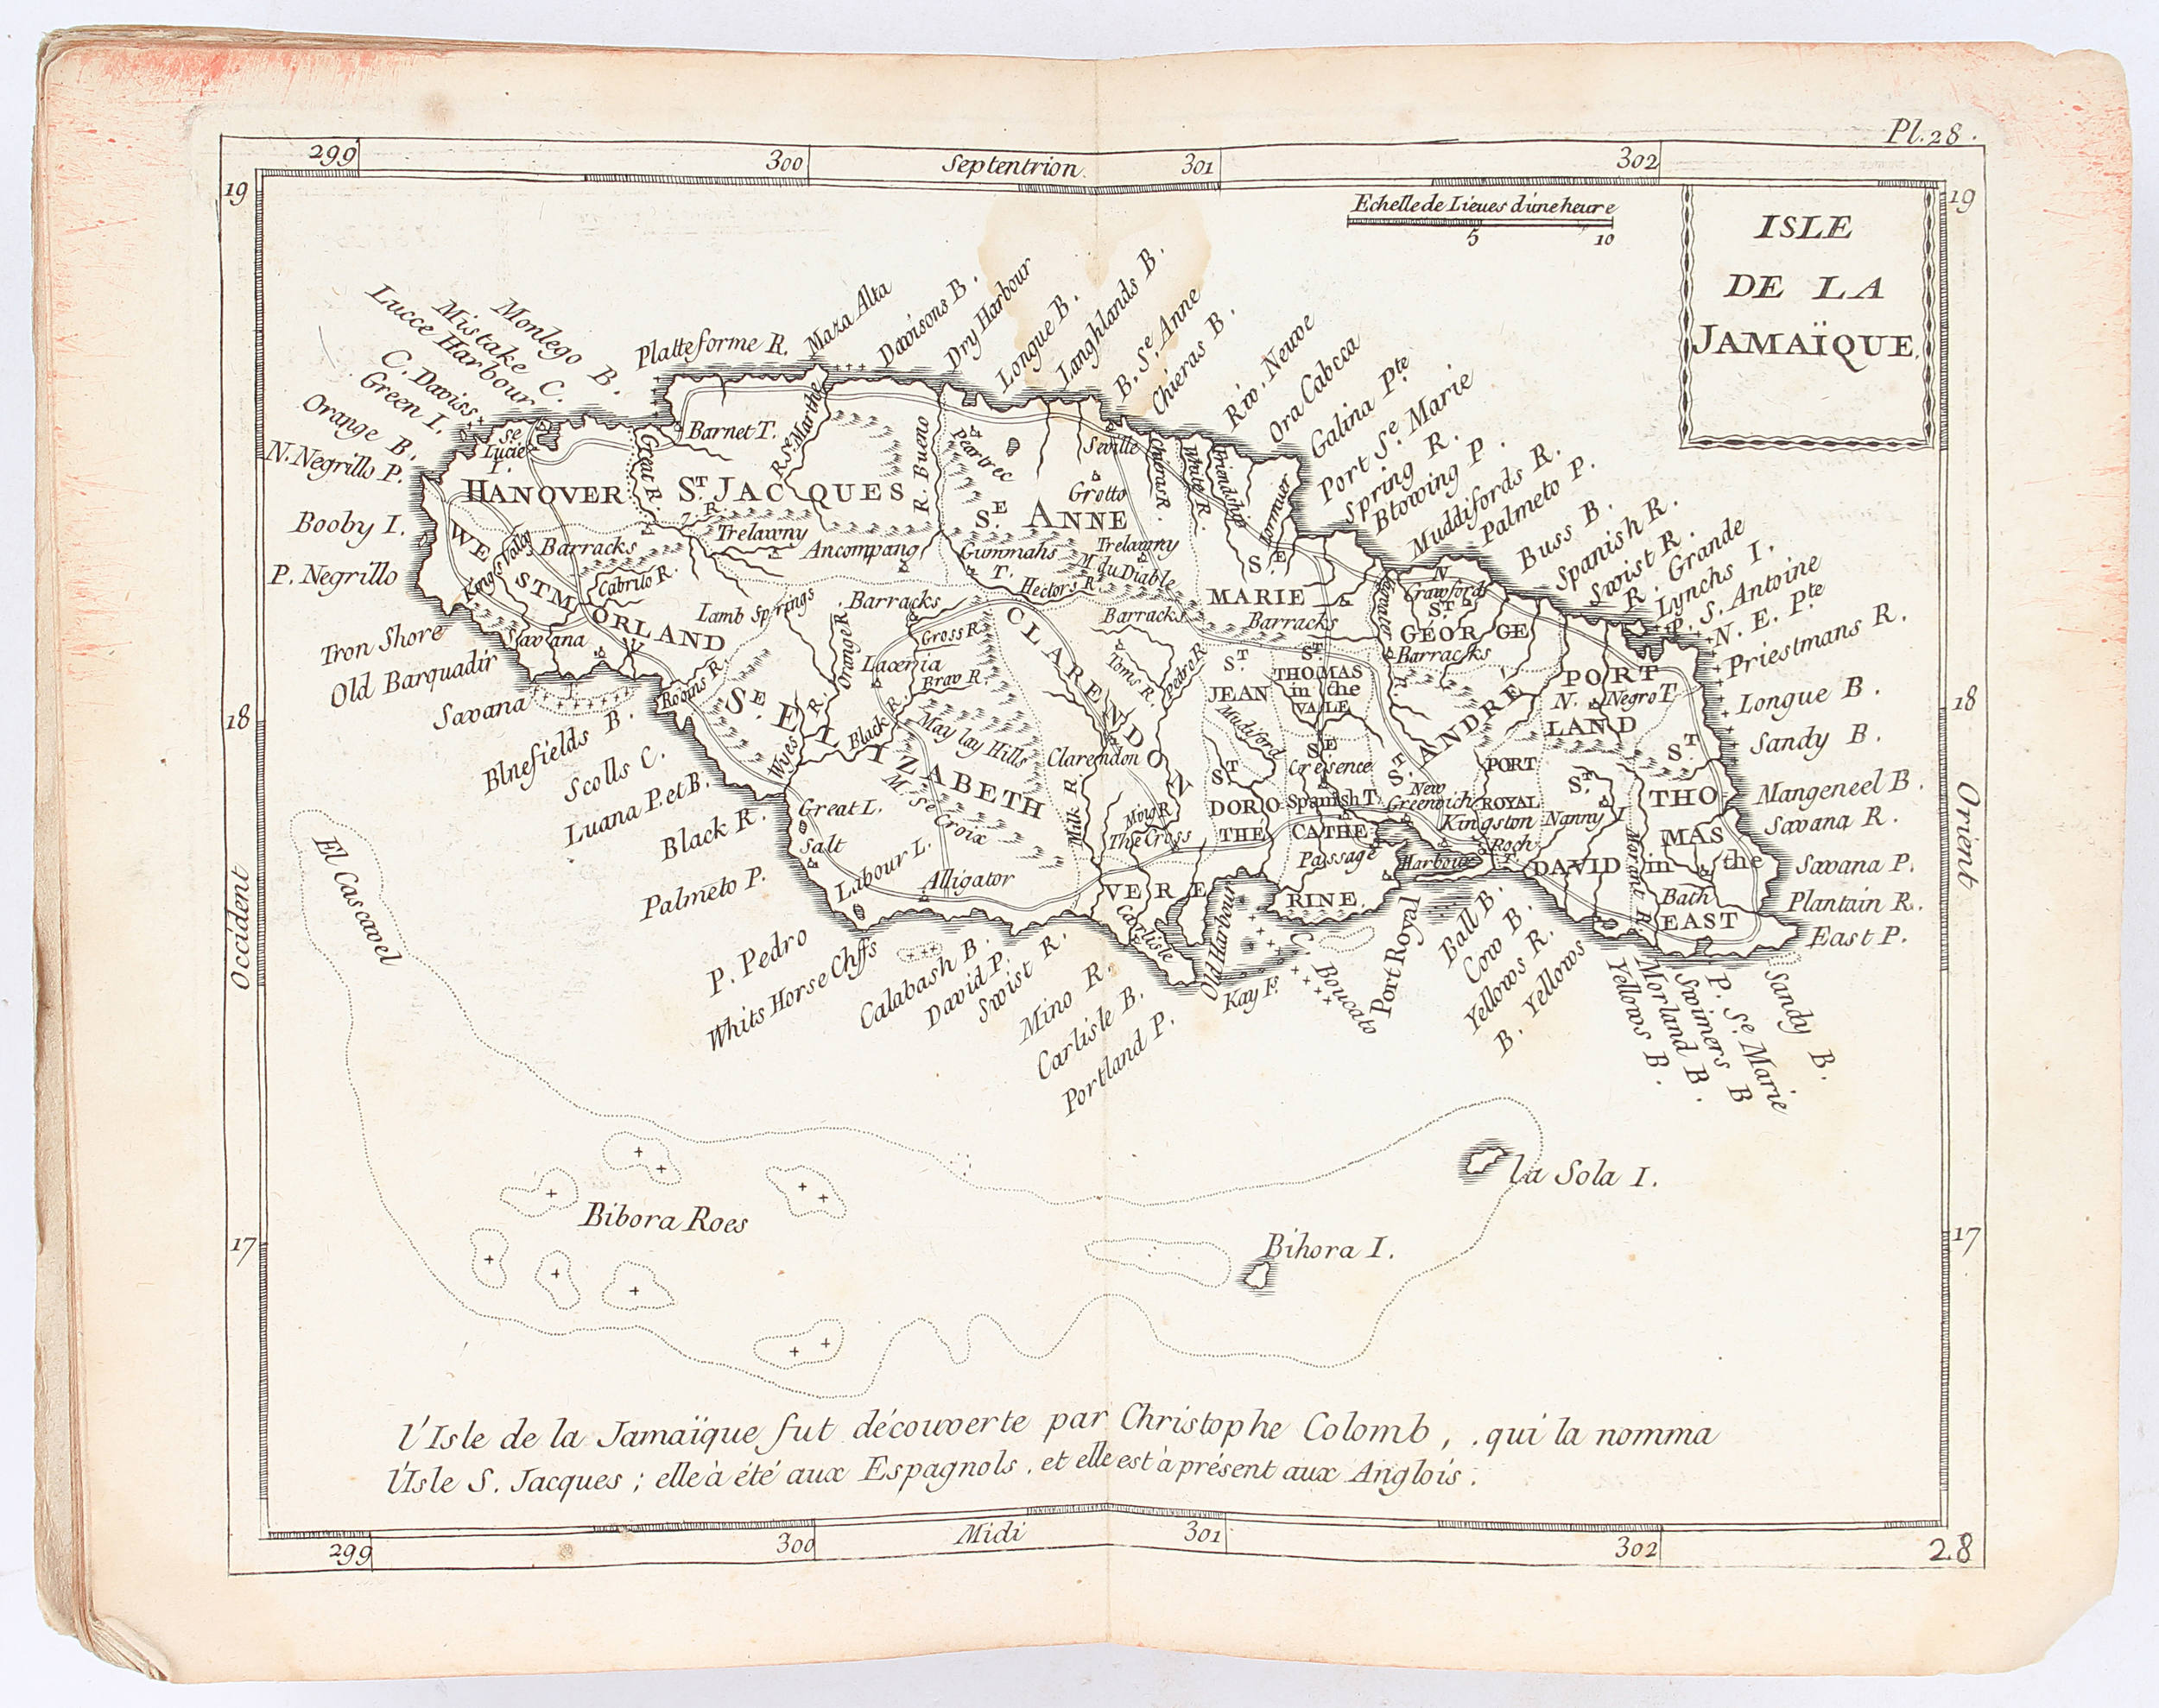 Pl. 28.
299
300
Septentrion.
301
302
19
19
Echelle de Lieues d'une heure
5
10
ISLE
DE LA
JAMAÏQUE.
Monlego B.
Mistake C.
Lucce Harbour
C. Daviss
Green I.
Orange B.
N. Negrillo P.
Booby I.
P. Negrillo
Iron Shore
Old Barquadir
Savana
Blnefields B.
Scolls C.
Luana P. et B.
Black R.
Palmeto P.
P. Pedro
Whits Horse Cliffs
Calabash B.
David P.
Swist R.
Mino R.
Carlisle B.
Portland P.
Platteforme R.
Maza Alta
Davisons B.
Dry Harbour
Longue B.
Langhlands B.
B. Se. Anne
Chieras B.
Rio. Neuve
Ora Cabeca
Galina Pte.
Port Se. Marie
Spring R.
Btowing P.
Muddifords R.
Palmeto P.
Buss B.
Spanish R.
Swist R.
R. Grande
Lynchs I.
P. S. Antoine
N. E. Pte.
Priestmans R.
Longue B.
Sandy B.
Mangeneel B.
Savana R.
Savana P.
Plantain R.
East P.
Sandy B.
P. Se. Marie
Swimers B
Morland B.
Yellows B.
B. Yellows
Yellows R.
Cow B.
Ball B.
Port Royal
C. Boucato
Kay Is.
Old Harbour
Carlisle
Se. Lucie
I.
Great R.
Barnet T.
R. Se. Marthe
R. Bueno
Peartree
Seville
Grotto
Chieras R.
White R.
HANOVER
ST. JACQUES
SE. ANNE
WESTMORLAND
Kings Valley
Barracks
Cabrito R.
Savana
Trelawny
Ancompang
Gummahs
T.
Trelawny
M. du Diable
Hectors R.
SE.
MARIE
N.
Crawford
ST.
GÉORGE
Barracks
Lamb Springs
Barracks
Barracks
Barracks
Orange R.
Gross R.
Lacovia
Brav R.
Robins R.
SE. ELIZABETH
Wyes R.
Black R.
May lay Hills
M. Se. Croix
CLARENDON
Clarendon
Toms R.
Pedro R.
ST.
JEAN
ST.
THOMAS
in the
VALE
ST. ANDRÉ
PORT
LAND
N.
Negro T.
Great L.
Salt
Labour L.
Alligator
Milk R.
The Cross
VERE
ST.
DOROTHÉ
SE.
Cresence
Spanish T.
CATHERINE
Passage
Harbour
New
Greenwich
Kingston
Roch
PORT
ROYAL
ST.
DAVID
Nanny T
Morant R.
ST.
THOMAS
in the
EAST
Bath
18
18
Occident
Orient
El Cascavel
Bibora Roes
Bihora I.
la Sola I.
17
17
l'Isle de la Jamaïque fut découverte par Christophe Colomb, . qui la nomma
l'Isle S. Jacques ; elle à été aux Espagnols, et elle est à présent aux Anglois.
299
300
Midi
301
302
28